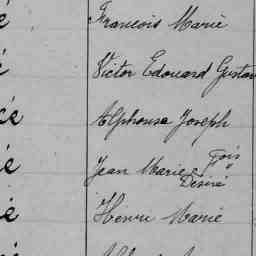 François Marie
Victor Edouard Gustav
Alphonse Joseph
Jean Marie Fois
Désiré
Henri Marie